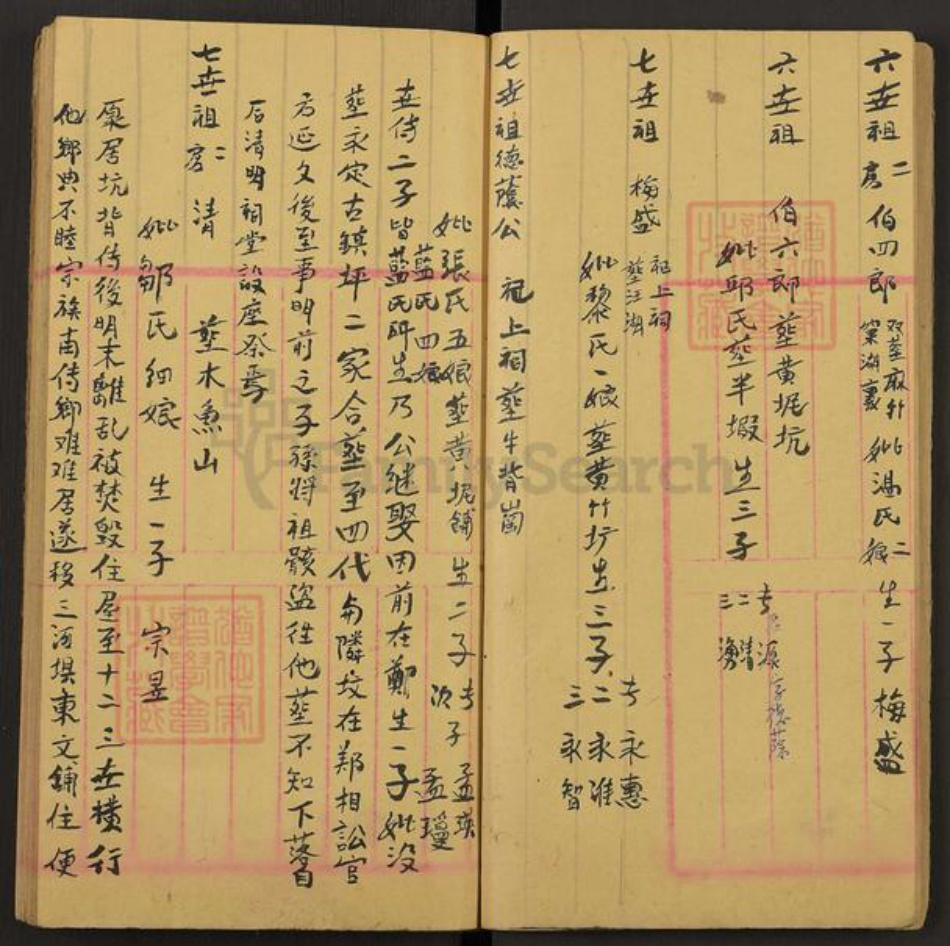 六世祖二房 伯四郎 双葬麻竹窠湖裏 妣温氏二娘 生一子梅盛
六世祖 伯六郎葬黄坭坑
妣邱氏葬半塅 生三子 長源 字德蔭
二清
三湧
七世祖 梅盛 祀上祠
葬汪湖
妣黎氏一娘 葬黄竹圹 生三子 長永惠
二永准
三永智
七世祖德蔭公 祀上祠葬牛背崗
妣張氏五娘葬黄坭鋪 生二子 長子孟瑛
蓝氏四娘 次子孟瓊
世傳二子皆蓝氏所生乃公继娶因前在鄭生一子妣没
葬永定古鎮坪二家合葬至四代与隣坟在郑相訟官
方延久後至事明前之子孫将祖骸盜徃他葬不知下落
后清明祠堂設座祭焉
七世祖二房 清 葬木魚山
妣鄒氏細娘 生一子 宗昱
原居坑背侍後明末離乱被焚毀住屋至十二三世横行
他鄉典不睦宗族南侍鄉难难居遂移三河垻東文鋪住便
FamilySearch